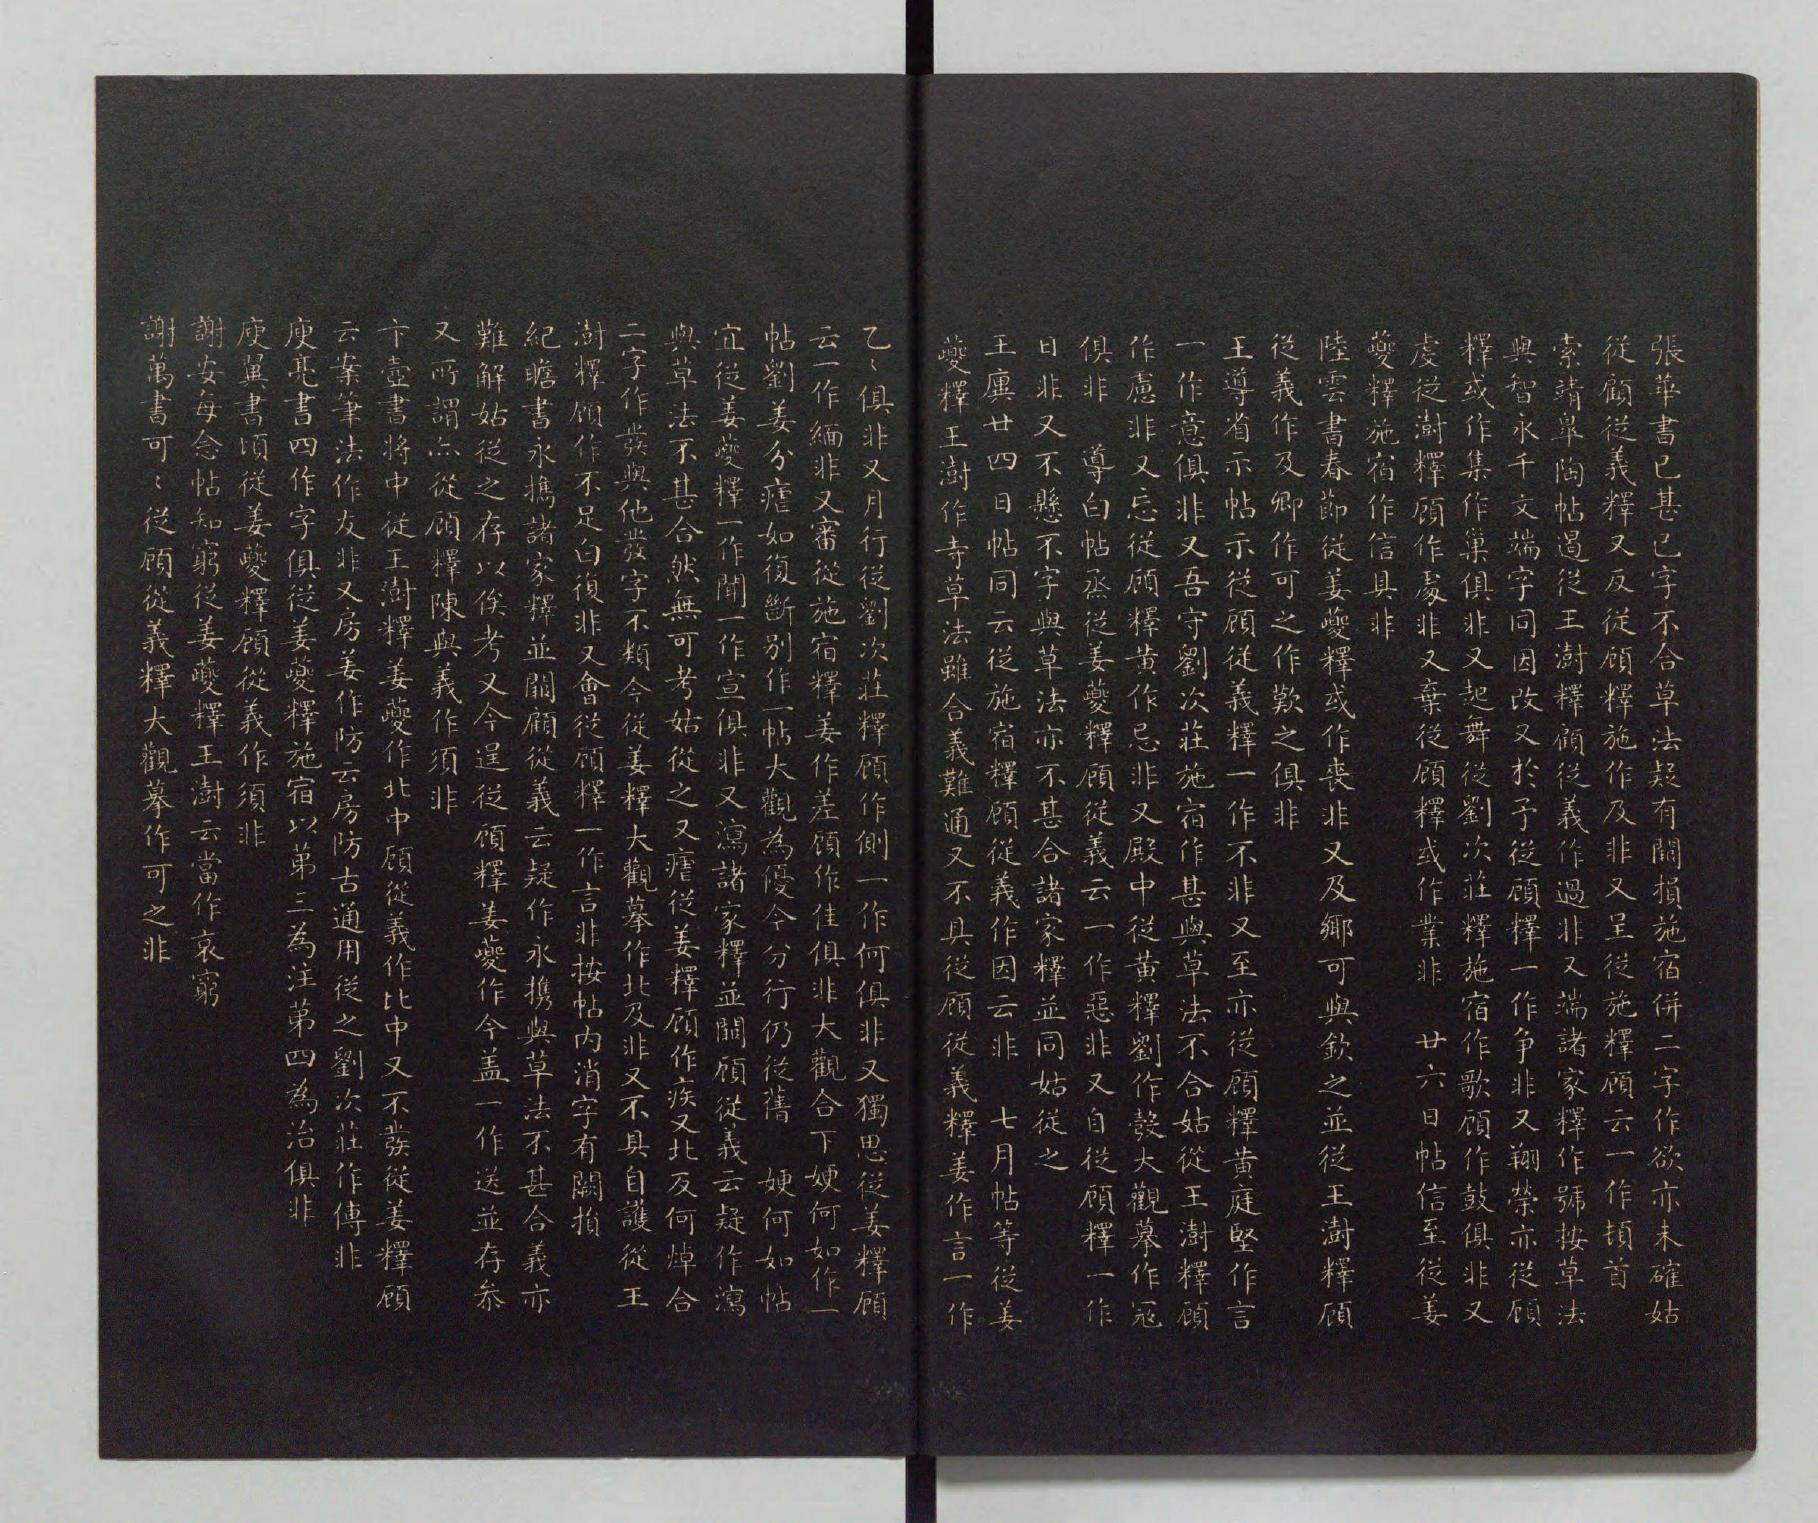 張華書已甚已字不合草法疑有闕損施宿併二字作欲亦未確姑
從顧從義釋又反從顧釋施作及非又呈從施釋顧云一作頓首
索靖皐陶帖遏從王澍釋顧從義作過非又端諸家釋作號按草法
與智永千文端字同因改又於予從顧釋一作爭非又翔榮亦從顧
釋或作集作巢俱非又起舞從劉次莊釋施宿作歌顧作鼓俱非又
虔從澍釋顧作處非又棄從顧釋或作業非 廿六日帖信至從姜
夔釋施宿作信具非
陸雲書春節從姜夔釋或作喪非又及鄉可與欽之並從王澍釋顧
從義作及卿作可之作歎之俱非
王導省示帖示從顧從義釋一作不非又至亦從顧釋黃庭堅作言
一作意俱非又吾守劉次莊施宿作甚與草法不合姑從王澍釋顧
作慮非又忘從顧釋黃作忌非又殿中從黃釋劉作發大觀摹作冠
俱非 導白帖烝從姜夔釋顧從義云一作惡非又自從顧釋一作
日非又不懸不字與草法亦不甚合諸家釋並同姑從之
王廙廿四日帖同云從施宿釋顧從義作因云非 七月帖等從姜
夔釋王澍作寺草法雖合義難通又不具從顧從義釋姜作言一作
乙〻俱非又月行從劉次莊釋顧作側一作何俱非又獨思從姜釋顧
云一作緬非又審從施宿釋姜作差顧作佳俱非大觀合下㛐何如作一
帖劉姜分瘧如復斷別作一帖大觀為優今分行仍從舊 㛐何如帖
宜從姜夔釋一作聞一作宣俱非又瀉諸家釋並闕顧從義云疑作瀉
與草法不甚合然無可考姑從之又瘧從姜釋顧作疾又北反何焯合
二字作發與他發字不類今從姜釋大觀摹作北及非又不具自護從王
澍釋顧作不足白復非又會從顧釋一作言非按帖內消字有闕損
紀瞻書永攜諸家釋並闕顧從義云疑作永攜與草法不甚合義亦
難解姑從之存以俟考又今逞從顧釋姜夔作今盖一作送並存叅
又所謂亦從顧釋陳與義作須非
卞壼書將中從王澍釋姜夔作北中顧從義作比中又不發從姜釋顧
云案筆法作友非又房姜作防云房防古通用從之劉次莊作傳非
庾亮書四作字俱從姜夔釋施宿以第三為注第四為治俱非
庾翼書頃從姜夔釋顧從義作須非
謝安每念帖知窮從姜夔釋王澍云當作哀窮
謝萬書可〻從顧從義釋大觀摹作可之非